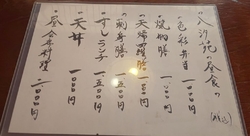 八汐祀 <昼食> (税込)
・色彩弁当 二〇〇〇円
・焼物膳 一五〇〇円
・天婦羅膳 一五〇〇円
・刺身膳 一五〇〇円
・すしランチ 一五〇〇円
・天丼 一〇〇〇円
・昼会席料理 三〇〇〇円